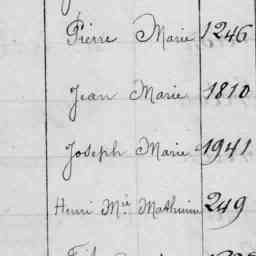 Pierre Marie 1246
Jean Marie 1810
Joseph Marie 1941
Henri Mie Mathurin 249